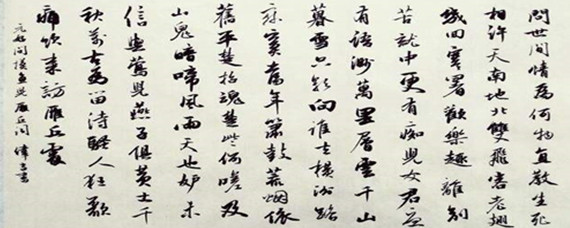 問世間情為何物直教生死
相許天南地北雙飛客老翅
幾回寒暑歡樂趣離別
苦就中更有痴兒女君應
有語渺萬里層雲千山
暮雪只影向誰去橫汾路
寂寞當年簫鼓荒烟依
舊平楚招魂楚些何嗟及
山鬼暗啼風雨天也妒未
信與鶯兒燕子俱黄土千
秋萬古為留待騷人狂歌
痛飲來訪雁丘處
元好問摸魚兒雁丘詞